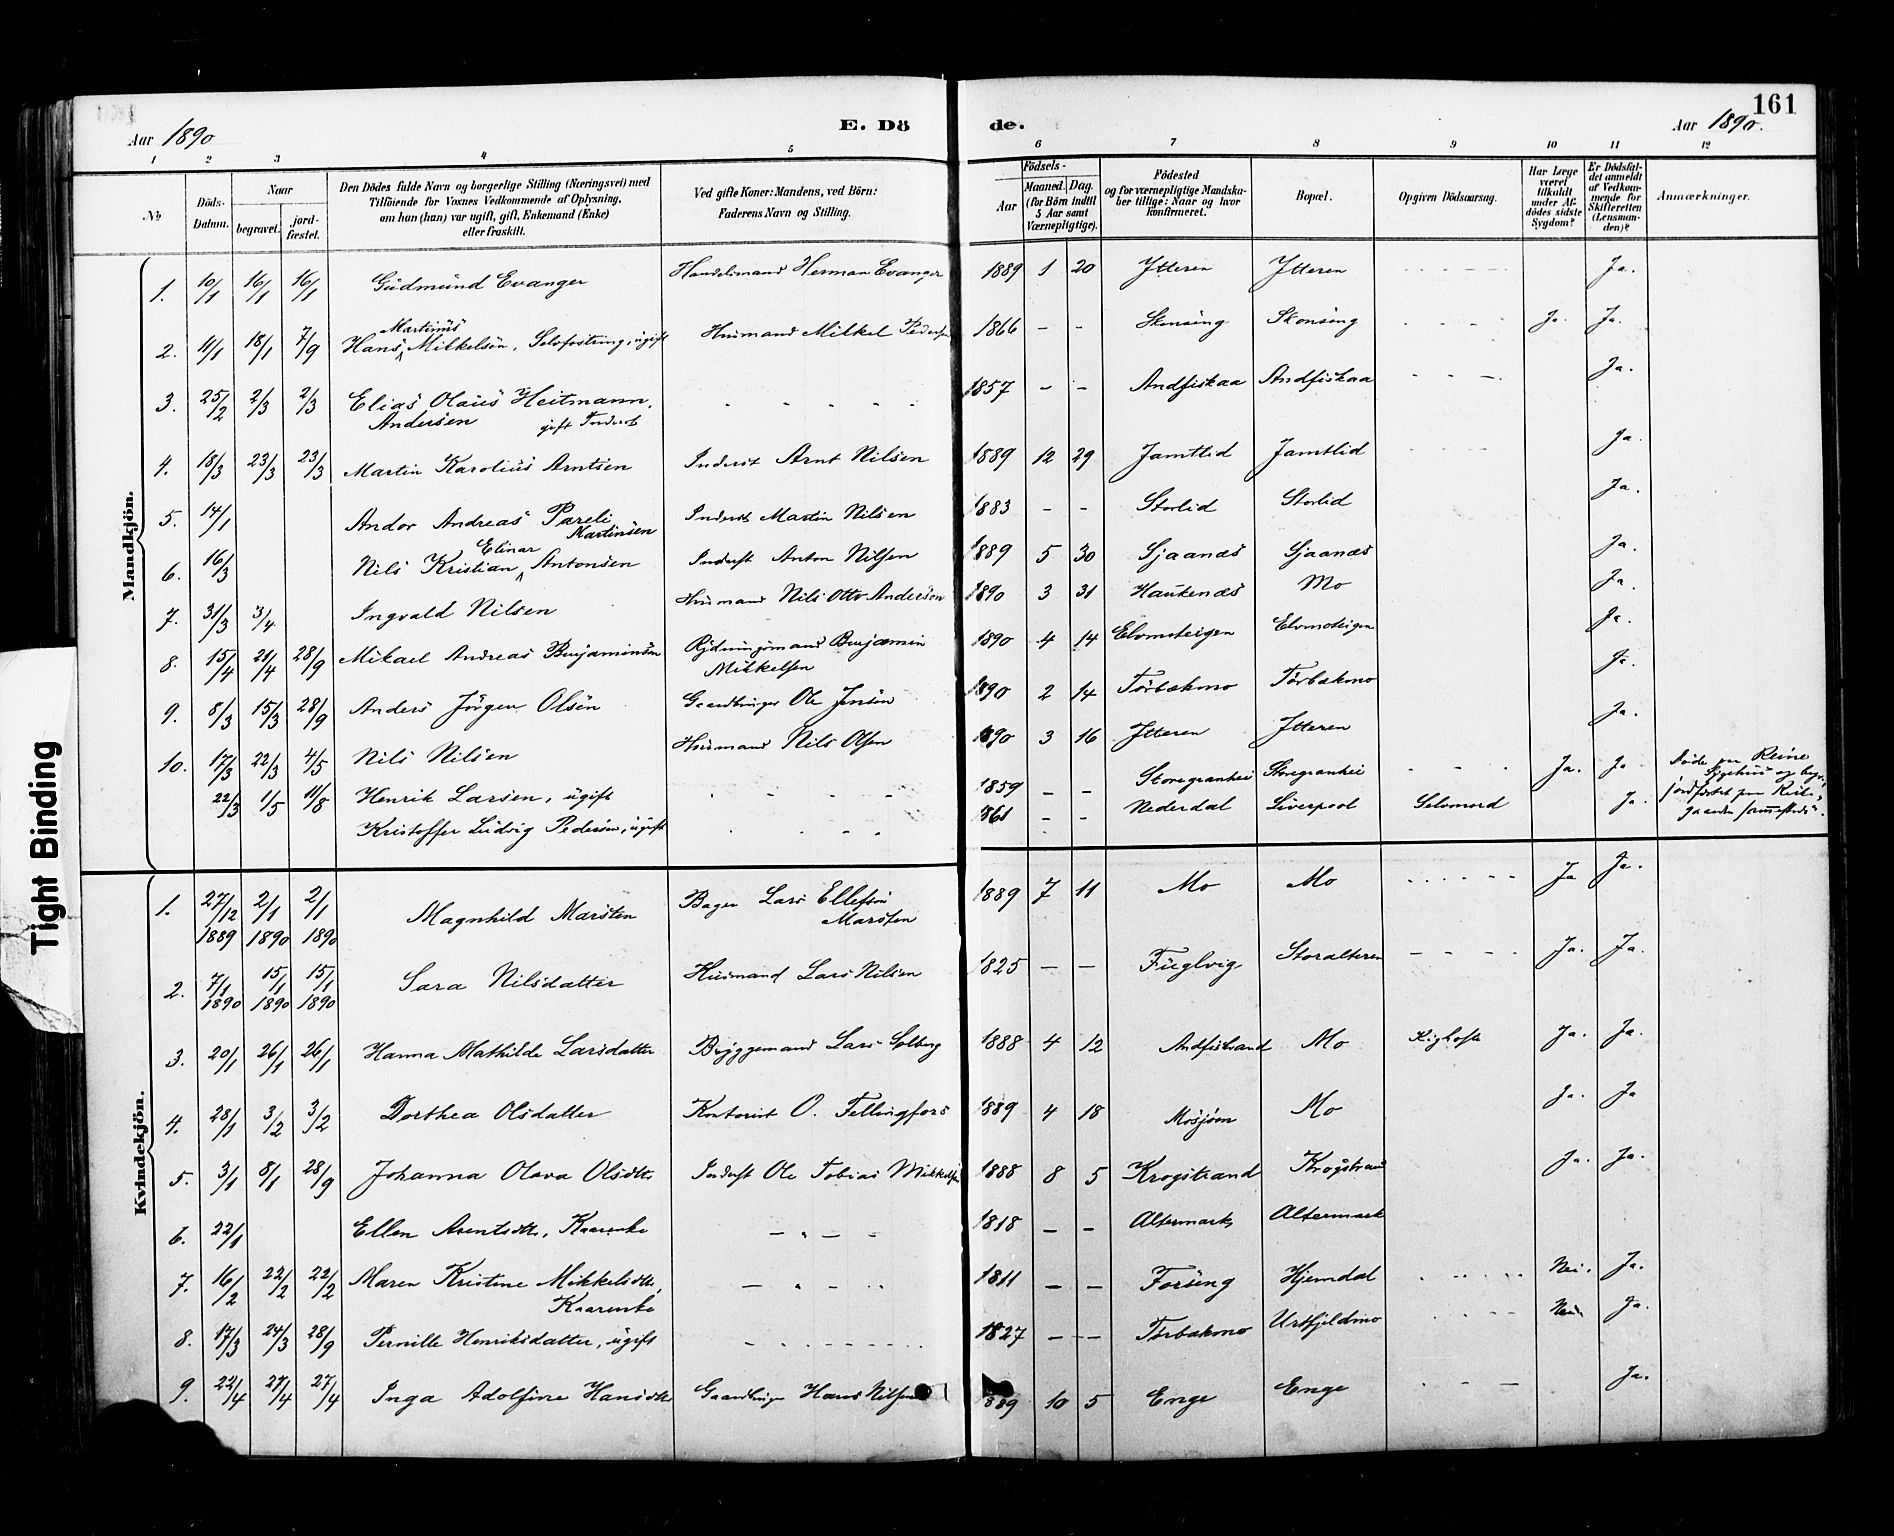 161
Aar 1890
E. Dö
de.
Aar 1890.
1 2 3 4 5 6 7 8 9 10 11 12
No
Döds-Datum.
Naar
begravet.
jord-fæstet.
Den Dödes fulde Navn og borgerlige Stilling (Næringsvei) med
Tilföiende for Voxnes Vedkommende af Oplysning,
om han (hun) var ugift, gift, Enkemand (Enke)
eller fraskilt.
Ved gifte Koner: Mandens, ved Börn:
Faderens Navn og Stilling.
Födsels-
Aar
Maaned. Dag.
(for Börn indtil
5 Aar samt
Værnepligtige).
Födested
og for værnepligtige Mandska-
ber tillige: Naar og hvor
konfirmeret.
Bopæl.
Opgiven Dödsaarsag.
Har Læge
været
tilkaldt
under Af-
dödes sidste
Sygdom?
Er Dödsfal-
det anmeldt
af Vedkom-
mende for
Skifteretten
(Lensman-
den)?
Anmærkninger.
Mandkjön.
1. 10/1 16/1 16/1 Gudmund Evanger Handelsmand Herman Evanger 1889 1 20 Ytteren Ytteren Ja.
2. 11/1 18/1 7/9 Hans Martinus Mikkelsen, ugift Husmand Mikkel Pedersen 1866 - - Skonseng Skonseng Ja. Ja.
3. 25/2 2/3 2/3 Elias Olaus Heitmann 1857 - - Andfiskaa Andfiskaa Ja.
Andersen gift Inderst
4. 18/3 23/3 23/3 Martin Karolius Arntsen Inderst Arnt Nilsen 1889 12 29 Jamtlid Jamtlid Ja.
5. 14/1 Andor Andreas Pareli Inderst Martin Nilsen 1883 - - Storlid Storlid Ja.
Martinsen
6. 16/3 Nils Kristian Elinar Antonsen Inderst Anton Nilsen 1889 5 30 Sjaanæs Sjaanæs Ja.
7. 31/3 3/4 Ingvald Nilsen Husmand Nils Otto Andersen 1890 3 31 Haukenæs Mo Ja
8. 15/4 21/4 28/9 Mikael Andreas Benjaminsen Rydningsmand Benjamin 1890 4 14 Elvmoteigen Elvmoteigen Ja.
Mikkelsen
9. 8/3 15/3 28/9 Anders Jörgen Olsen Gaardbruger Ole Jensen 1890 2 14 Torbækmo Torbækmo Ja.
10. 17/3 22/3 4/5 Nils Nilsen Husmand Nils Olsen 1890 3 16 Ytteren Ytteren Ja.
22/3 1/5 11/8 Henrik Larsen, ugift 1859 - - Storegranhei Storegranhei Ja. Ja
Kristoffer Ludvig Pedersen, ugift 1861 - - Nederdal Liverpool Selvmord Ja.
Döde paa Reine
Sygehus og
jordfæstet paa
Kvindekjön.
1. 27/12 1889 2/1 1890 2/1 1890 Magnhild Marsten Bager Lars Ellefsen 1889 7 11 Mo Mo Ja Ja.
Marsten
2. 7/1 1890 15/1 1890 15/1 1890 Sara Nilsdatter Husmand Lars Nilsen 1825 - - Fuglvig Storalteren Ja. Ja.
3. 20/1 26/1 26/1 Hanna Mathilde Larsdatter Bryggemand Lars Solberg 1888 4 12 Andfistrand Mo Kighoste Ja. Ja.
4. 28/1 3/2 3/2 Dorthea Olsdatter Kontorist O. Fellingfors 1889 4 18 Mosjöen Mo Ja. Ja
5. 3/1 8/1 28/9 Johanna Olava Olsdtr Inderst Ole Tobias Mikkelsen 1888 8 5 Krogstrand Krogstrand Ja. Ja.
6. 22/1 Ellen Arentsdtr, Kaarenke 1818 - - Altermark Altermark
7. 16/2 22/2 22/2 Maren Kristine Mikkelsdtr, 1811 - - Forseng Hjemdal Nei. Ja.
Kaarenke
8. 17/3 24/3 28/9 Pernille Henriksdatter, ugift 1827 - - Torbækmo Urtfjeldmo Nei. Ja.
9. 22/4 27/4 27/4 Inga Adolfine Hansdtr Gaardbruger Hans Nilsen 889 10 5 Enge Enge Ja.
Tight Binding